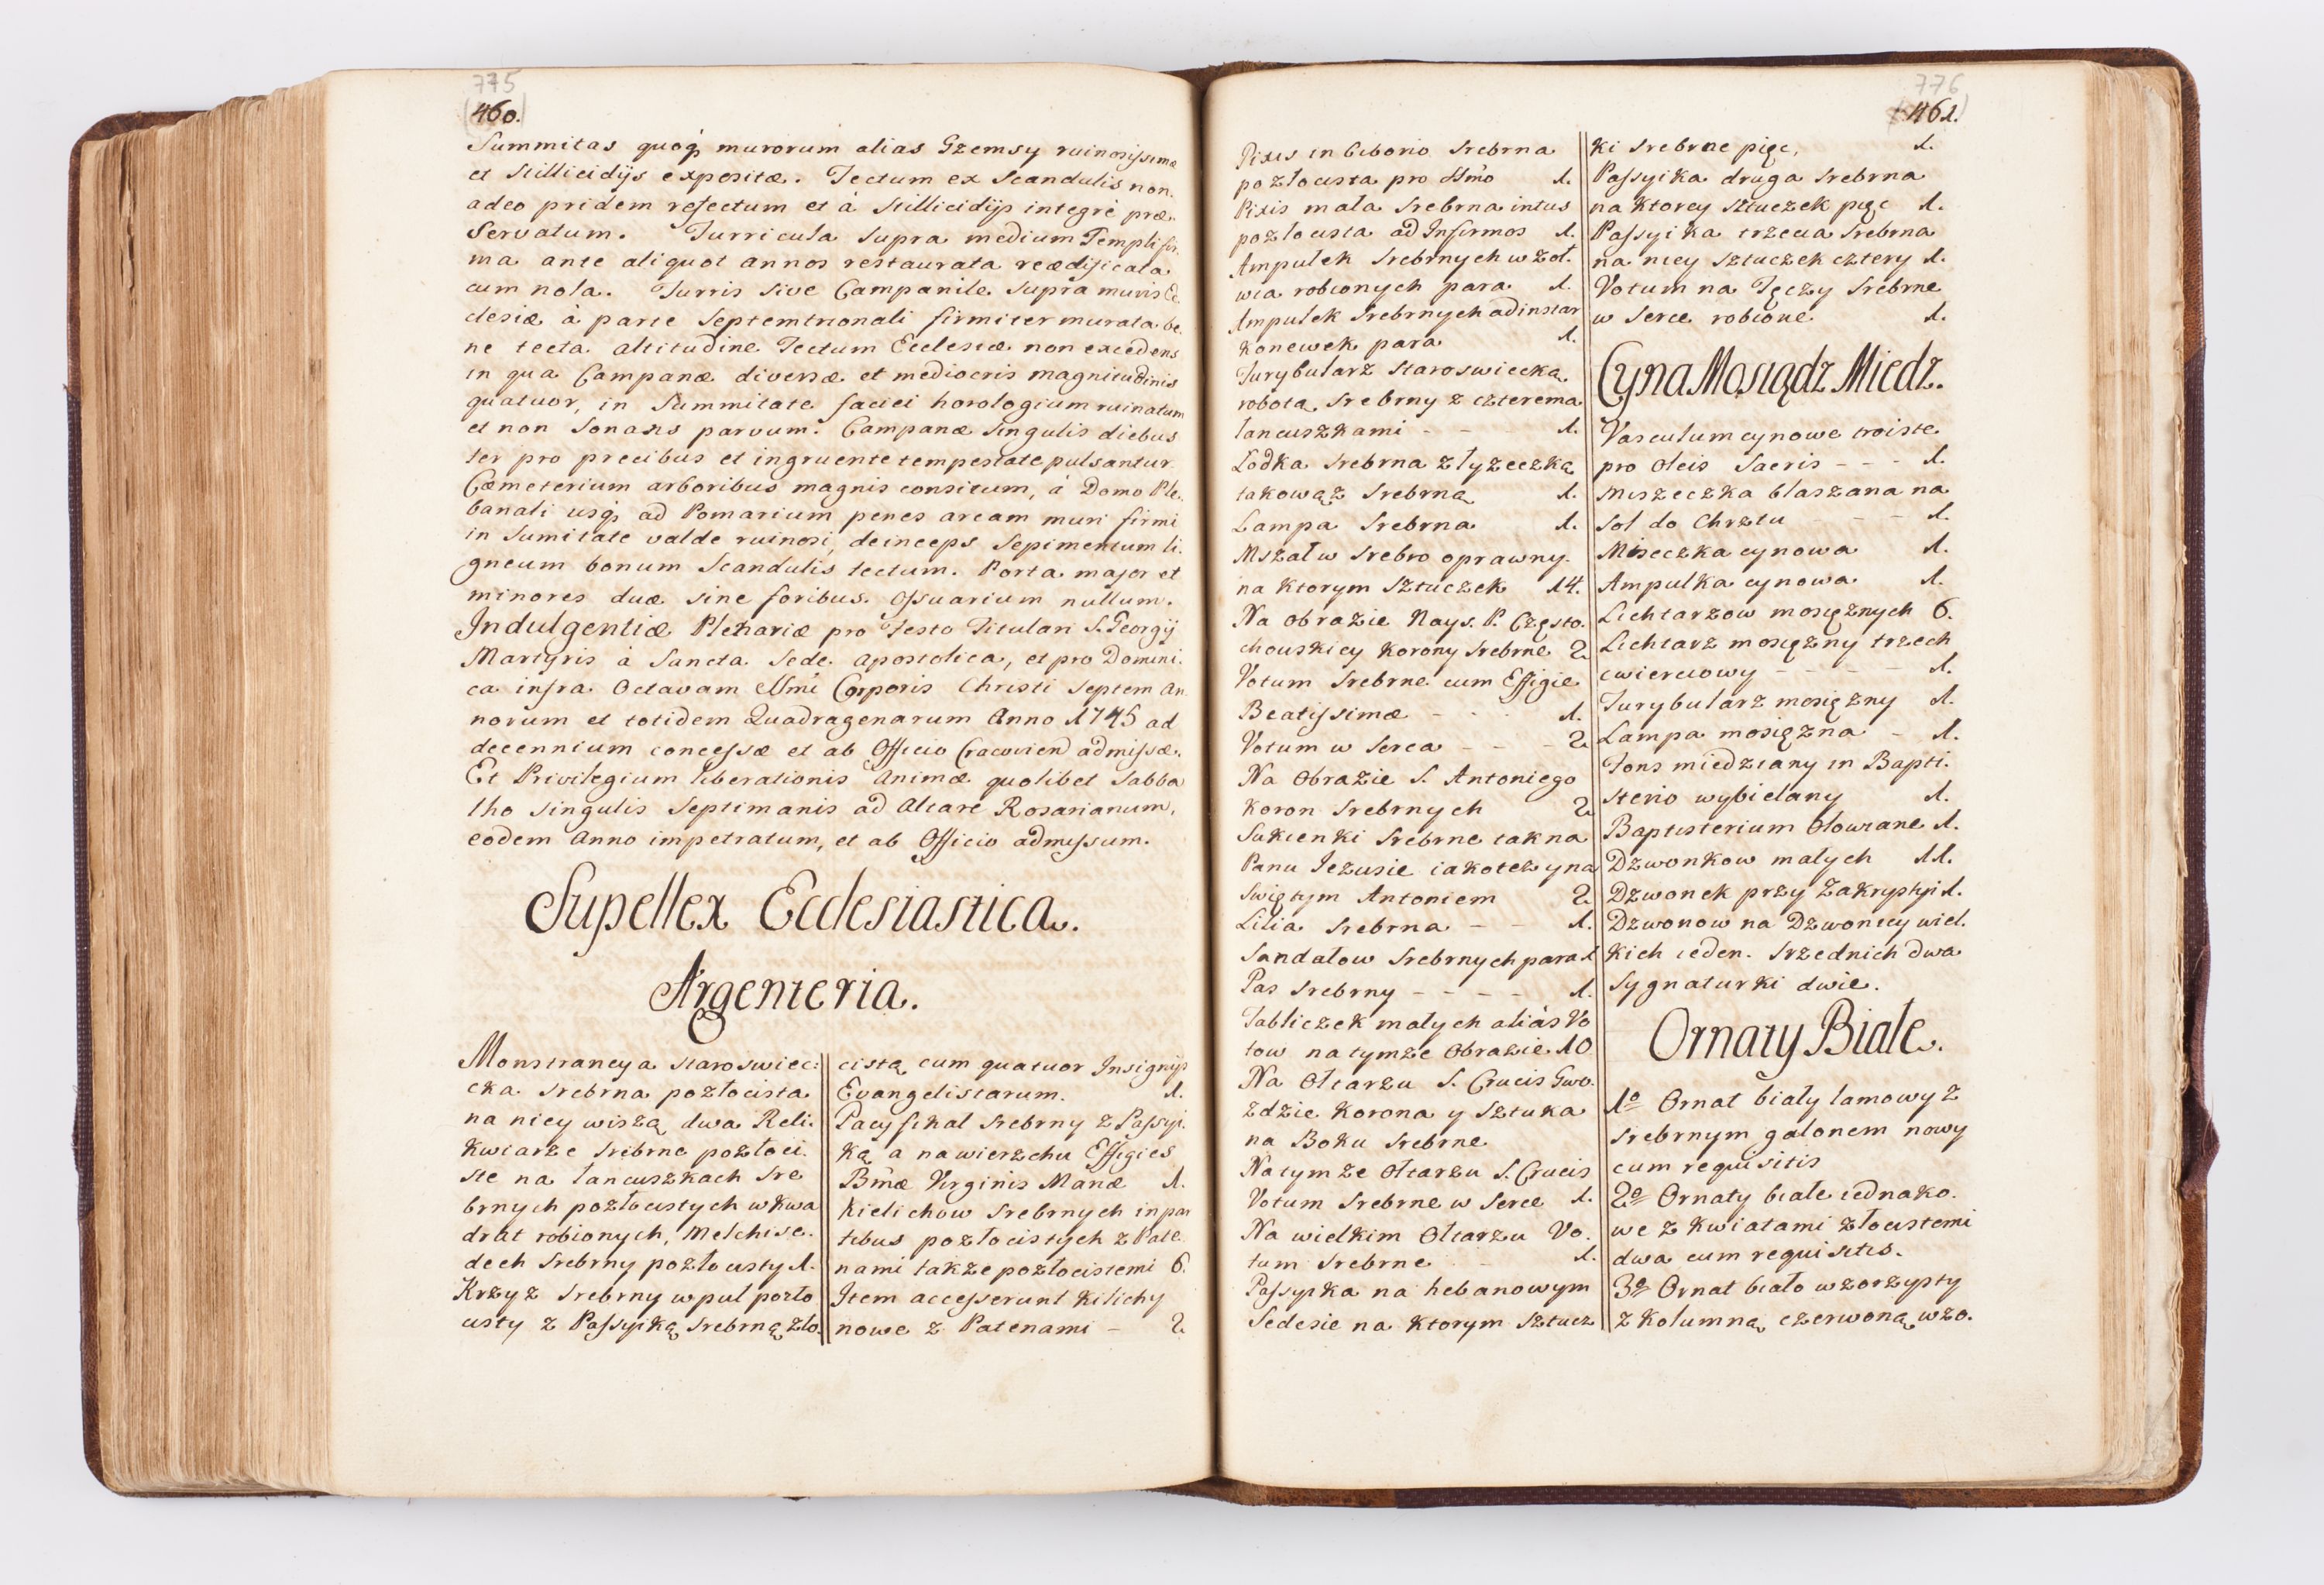 775
460.
Summitas quoq; murorum alias Gzemsy ruinosissimæ
et stillicidijs expositæ. Tectum ex Scandulis non
adeo pridem refectum et à stillicidijs integrè præ-
servatum. Turricula supra medium Templi fir-
ma ante aliquot annos restaurata reædificata
cum nola. Turris sive Campanile supra muris Ec-
clesiæ à parte Septemtrionali firmiter murata be-
ne tecta altitudine Tectum Ecclesiæ non excedens
in qua Campanæ diversæ et mediocris magnitudinis
quatuor, in Summitate faciei horologium ruinatum
et non sonans parvum. Campanæ singulis diebus
ter pro precibus et ingruente tempestate pulsantur.
Cæmeterium arboribus magnis consitum, à Domo Ple-
banali usq; ad Pomarium penes aream muri firmi
in sumitate valde ruinosi, deinceps Sepimentum li-
gneum bonum Scandulis tectum. Porta major et
minores duæ sine foribus. Ossuarium nullum.
Indulgentiæ Plenariæ pro Festo Titulari S. Georgij
Martyris à Sancta Sede Apostolica, et pro Domini-
ca infra Octavam SSmi Corporis Christi Septem An-
norum et totidem Quadragenarum Anno 1745 ad
decennium concessæ et ab Officio Cracovien admissæ.
Et Privilegium liberationis Animæ quolibet Sabba
tho singulis Septimanis ad Altare Rosarianum,
eodem Anno impetratum, et ab Officio admissum.
Supellex Ecclesiastica.
Argenteria.
Monstrancya staroswiec:
cka srebrna pozłocista
na niey wiszą dwa Reli:
kwiarze sribrne pozłoci:
ste na łancuszkach sre
brnych pozłocistych w kwa
drat robionych, Melchise-
dech srebrny pozłocisty 1.
Krzyz srebrny w puł pozło
cisty z Passyiką srebrną zło-
cistą cum quatuor Insignijs
Evangelistarum. 1.
Pacyfikał srebrny z Passyi-
ką a na wierzchu Effigies
Bmæ Virginis Mariæ 1.
Kielichow srebrnych in par
tibus pozłocistych z Pate-
nami także pozłocistemi 6.
Item accesserunt kilichy
nowe z Patenami - 2
776
461.
Pixis in Ciborio srebrna
pozłocista pro SSmo 1.
Pixis mała srebrna intus
pozłocista ad Infirmos 1.
Ampułek srebrnych w żoł-
wia robionych para 1.
Ampułek srebrnych ad instar
konewek para 1.
Turybularz staroswiecką
robotą srebrny z czterema
łancuszkami - - 1.
Łodka srebrna z łyzeczką
takowąż srebrną 1.
Lampa srebrna 1.
Mszał w srebro oprawny
na ktorym sztuczek 14.
Na obrazie Nays. P. Często-
chouskiey korony srebrne 2
Votum srebrne cum Effigie
Beatissimæ - - 1.
Votum w serca - - - 2
Na Obrazie S. Antoniego
koron srebrnych 2
Sukienki srebrne tak na
Panu Jezusie iakoteż y na
swiętym Antoniem 2
Lilia srebrna - - 1.
Sandałow srebrnych para 1
Pas srebrny - - - - 1.
Tabliczek małych aliàs Vo
tow na tymże Obrazie. 10
Na Ołtarzu S. Crucis Gwo-
zdzie korona y sztuka
na Boku srebrne
Na tymze Ołtarzu S. Crucis
Votum srebrne w serce 1.
Na wielkim Ołtarzu Vo-
tum srebrne - 1.
Passyika na hebanowym
Sedesie na ktorym sztucz
ki srebrne pięc, 1.
Passyika druga srebrna
na ktorey sztuczek pięc 1.
Passyika trzecia srebrna
na niey sztuczek cztery 1.
Votum na Tęczy srebrne
w serce robione 1.
Cyna Mosiądz Miedz.
Vasculum cynowe troiste
pro Oleis Sacris - - - 1.
Miszeczka blaszana na
sol do Chrztu - - - 1.
Miseczka cynowa 1.
Ampulka cynowa 1.
Lichtarzow mosiężnych 6.
Lichtarz mosiężny trzech
cwierciowy - - - - 1.
Turybularz mosiężny 1.
Lampa mosiężna - 1.
Fons miedziany in Bapti-
sterio wybielany 1.
Baptisterium Ołowiane 1.
Dzwonkow małych 11.
Dzwonek przy Zakrystyi 1.
Dzwonow na Dzwonicy wiel-
kich ieden. Srzednich dwa
sygnaturki dwie.
Ornaty Białe.
1o Ornat biały lamowy z
srebrnym galonem nowy
cum requisitis
2o Ornaty białe iednako-
we z kwiatami złocistemi
dwa cum requisitis.
3o Ornat biało wzorzysty
z kolumną czerwoną wzo-